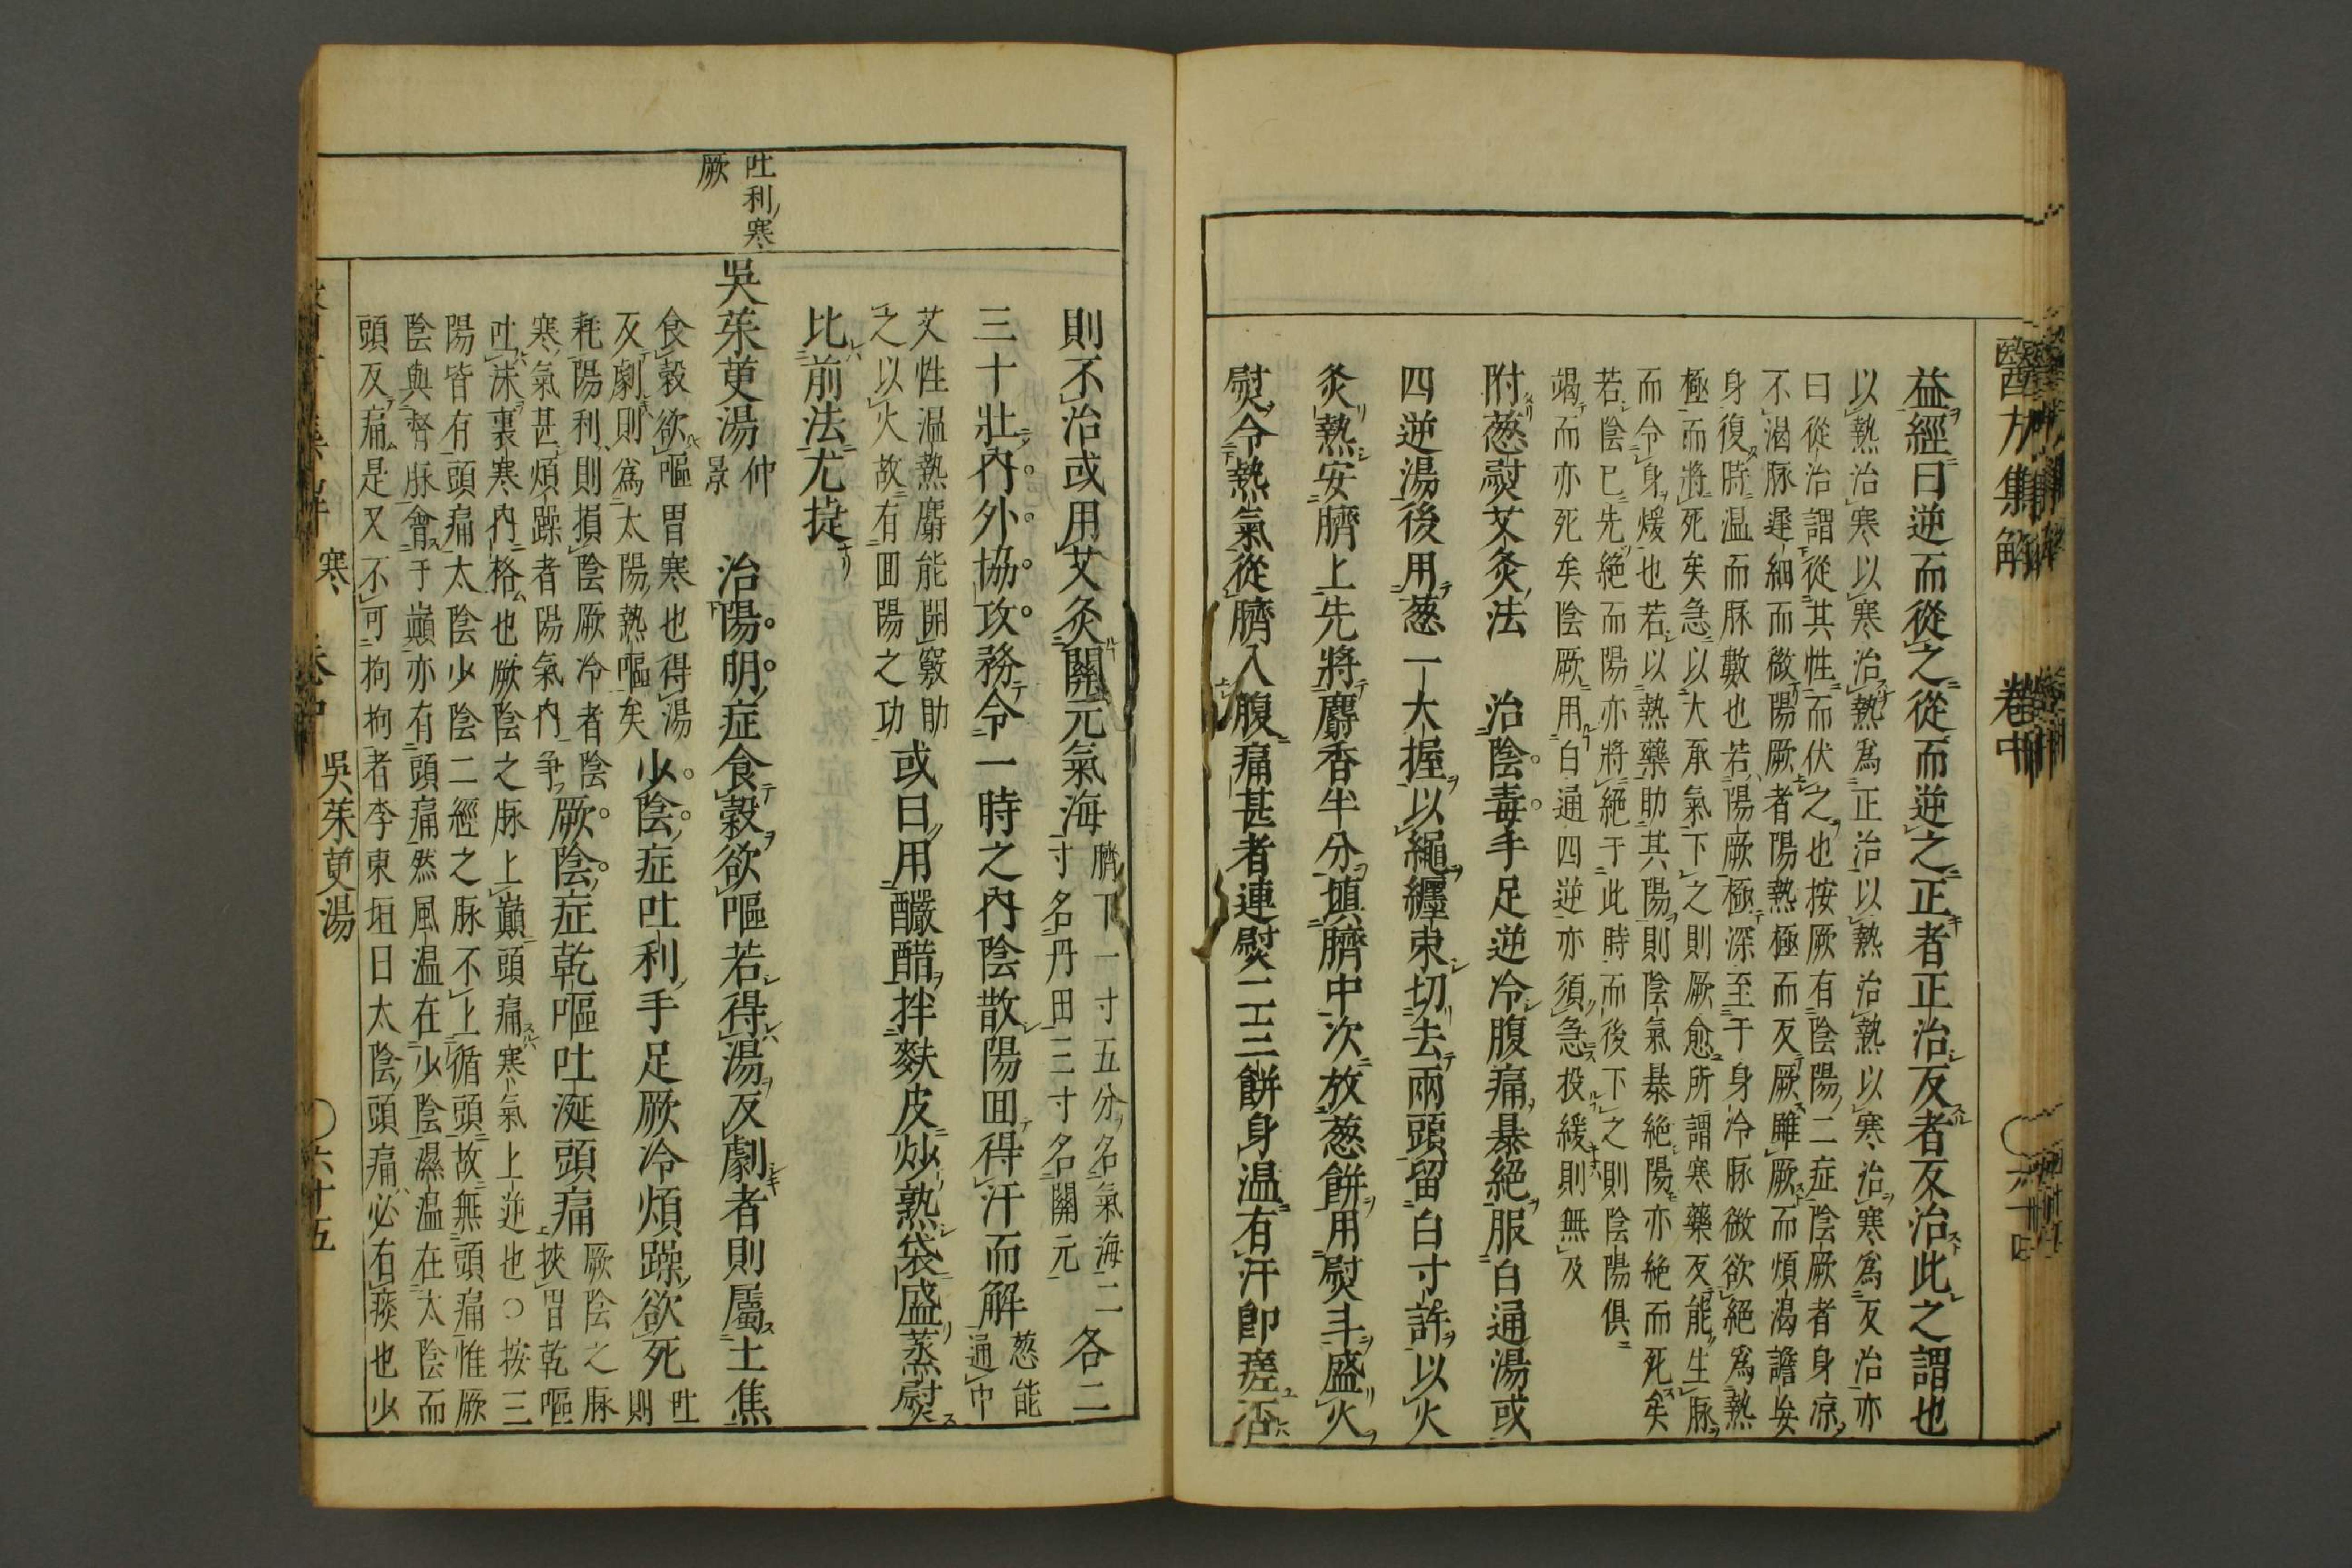 醫方集解 卷中
益經曰逆而從之從而逆之正者正治反者反治此之謂也
以熱治寒以寒治熱爲正治以熱治熱以寒治寒爲反治亦
曰從治謂從其性而伏之也按厥有陰陽二症陰厥者身凉
不渴脉遲細而微陽厥者陽熱極而反厥雖厥而煩渴譫妄
身復時温而脉數也若陽厥極深至于身冷脉微欲絕爲熱
極而將死矣急以大承氣下之則厥愈所謂寒藥反能生脉
而令身煖也若以熱藥助其陽則陰氣暴絕陽亦絕而死矣
若陰已先絕而陽亦將絕于此時而後下之則陰陽俱
竭而亦死矣陰厥用白通四逆亦須急投緩則無及
附葱熨艾灸法 治陰毒手足逆冷腹痛暴絕服白通湯或
四逆湯後用葱一大握以繩纒束切去兩頭留白寸許以火
炙熱安臍上先將麝香半分塡臍中次放葱餅用熨斗盛火
熨令熱氣從臍入腹痛甚者連熨二三餅身温有汗即瘥否
則不治或用艾灸關元氣海臍下一寸五分名氣海二
寸名丹田三寸名關元各二
三十壯內外協攻務令一時之內陰散陽囬得汗而解葱能
通中
艾性温熱麝能開竅助
之以火故有囬陽之功或曰用釅醋拌麩皮炒熟袋盛蒸熨
比前法尤捷
吐利寒
厥
吳茱萸湯仲
景 治陽明症食穀欲嘔若得湯反劇者則屬上焦
食穀欲嘔胃寒也得湯
反劇則爲太陽熱嘔矣少陰症吐利手足厥冷煩躁欲死吐
則
耗陽利則損陰厥冷者陰
寒氣甚煩躁者陽氣內争厥陰症乾嘔吐涎頭痛厥陰之脉
挾胃乾嘔
吐沫裏寒內格也厥陰之脉上巔頭痛寒氣上逆也○按三
陽皆有頭痛太陰少陰二經之脉不上循頭故無頭痛惟厥
陰與督脉會于巔亦有頭痛然風温在少陰濕温在太陰而
頭反痛是又不可拘拘者李東垣曰太陰頭痛必有痰也少
寒 卷中 吳茱萸湯 ○六十五